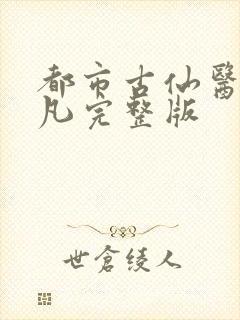 都市古仙醫
凡完整版
世倉绫人